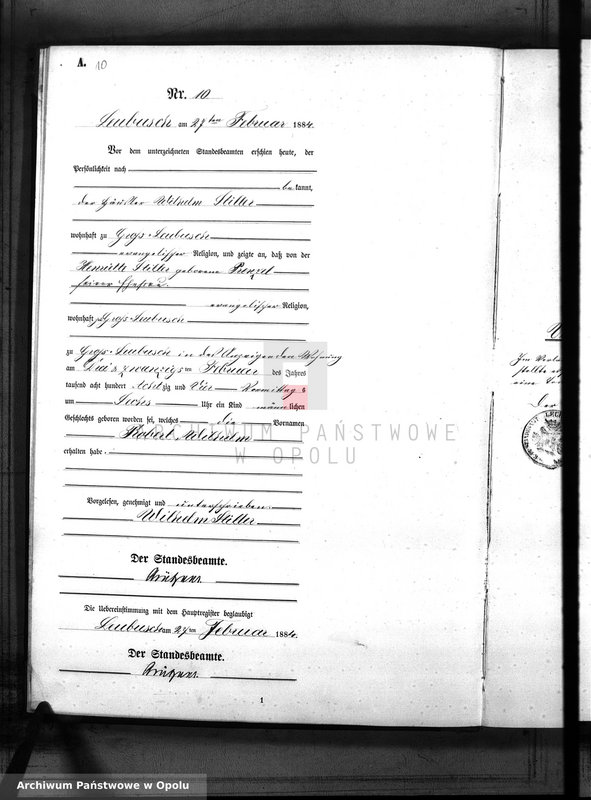 A. 10
Nr. 10
Leubusch am 27ten Februar 1884.
Vor dem unterzeichneten Standesbeamten erschien heute, der
Persönlichkeit nach
bekannt,
der Häusler Wilhelm Stiller
wohnhaft zu Groß-Leubusch
evangelischer Religion, und zeigte an, daß von der
Henriette Stiller geborene
seiner Ehefrau
evangelischer Religion,
wohnhaft zu Groß-Leubusch
zu Groß-Leubusch in der Wohnung
am Februar des Jahres
tausend acht hundert achtzig und Vier Vormittags
um Sechs Uhr ein Kind männlichen
Geschlechts geboren worden sei, welches die Vornamen
Robert Wilhelm
erhalten habe.
Vorgelesen, genehmigt und unterschrieben.
Wilhelm Stiller
Der Standesbeamte.
Die Uebereinstimmung mit dem Hauptregister beglaubigt
Leubusch am 27ten Februar 1884.
Der Standesbeamte.
1
ARCHIWUM PAŃSTWOWE
W OPOLU
Archiwum Państwowe w Opolu